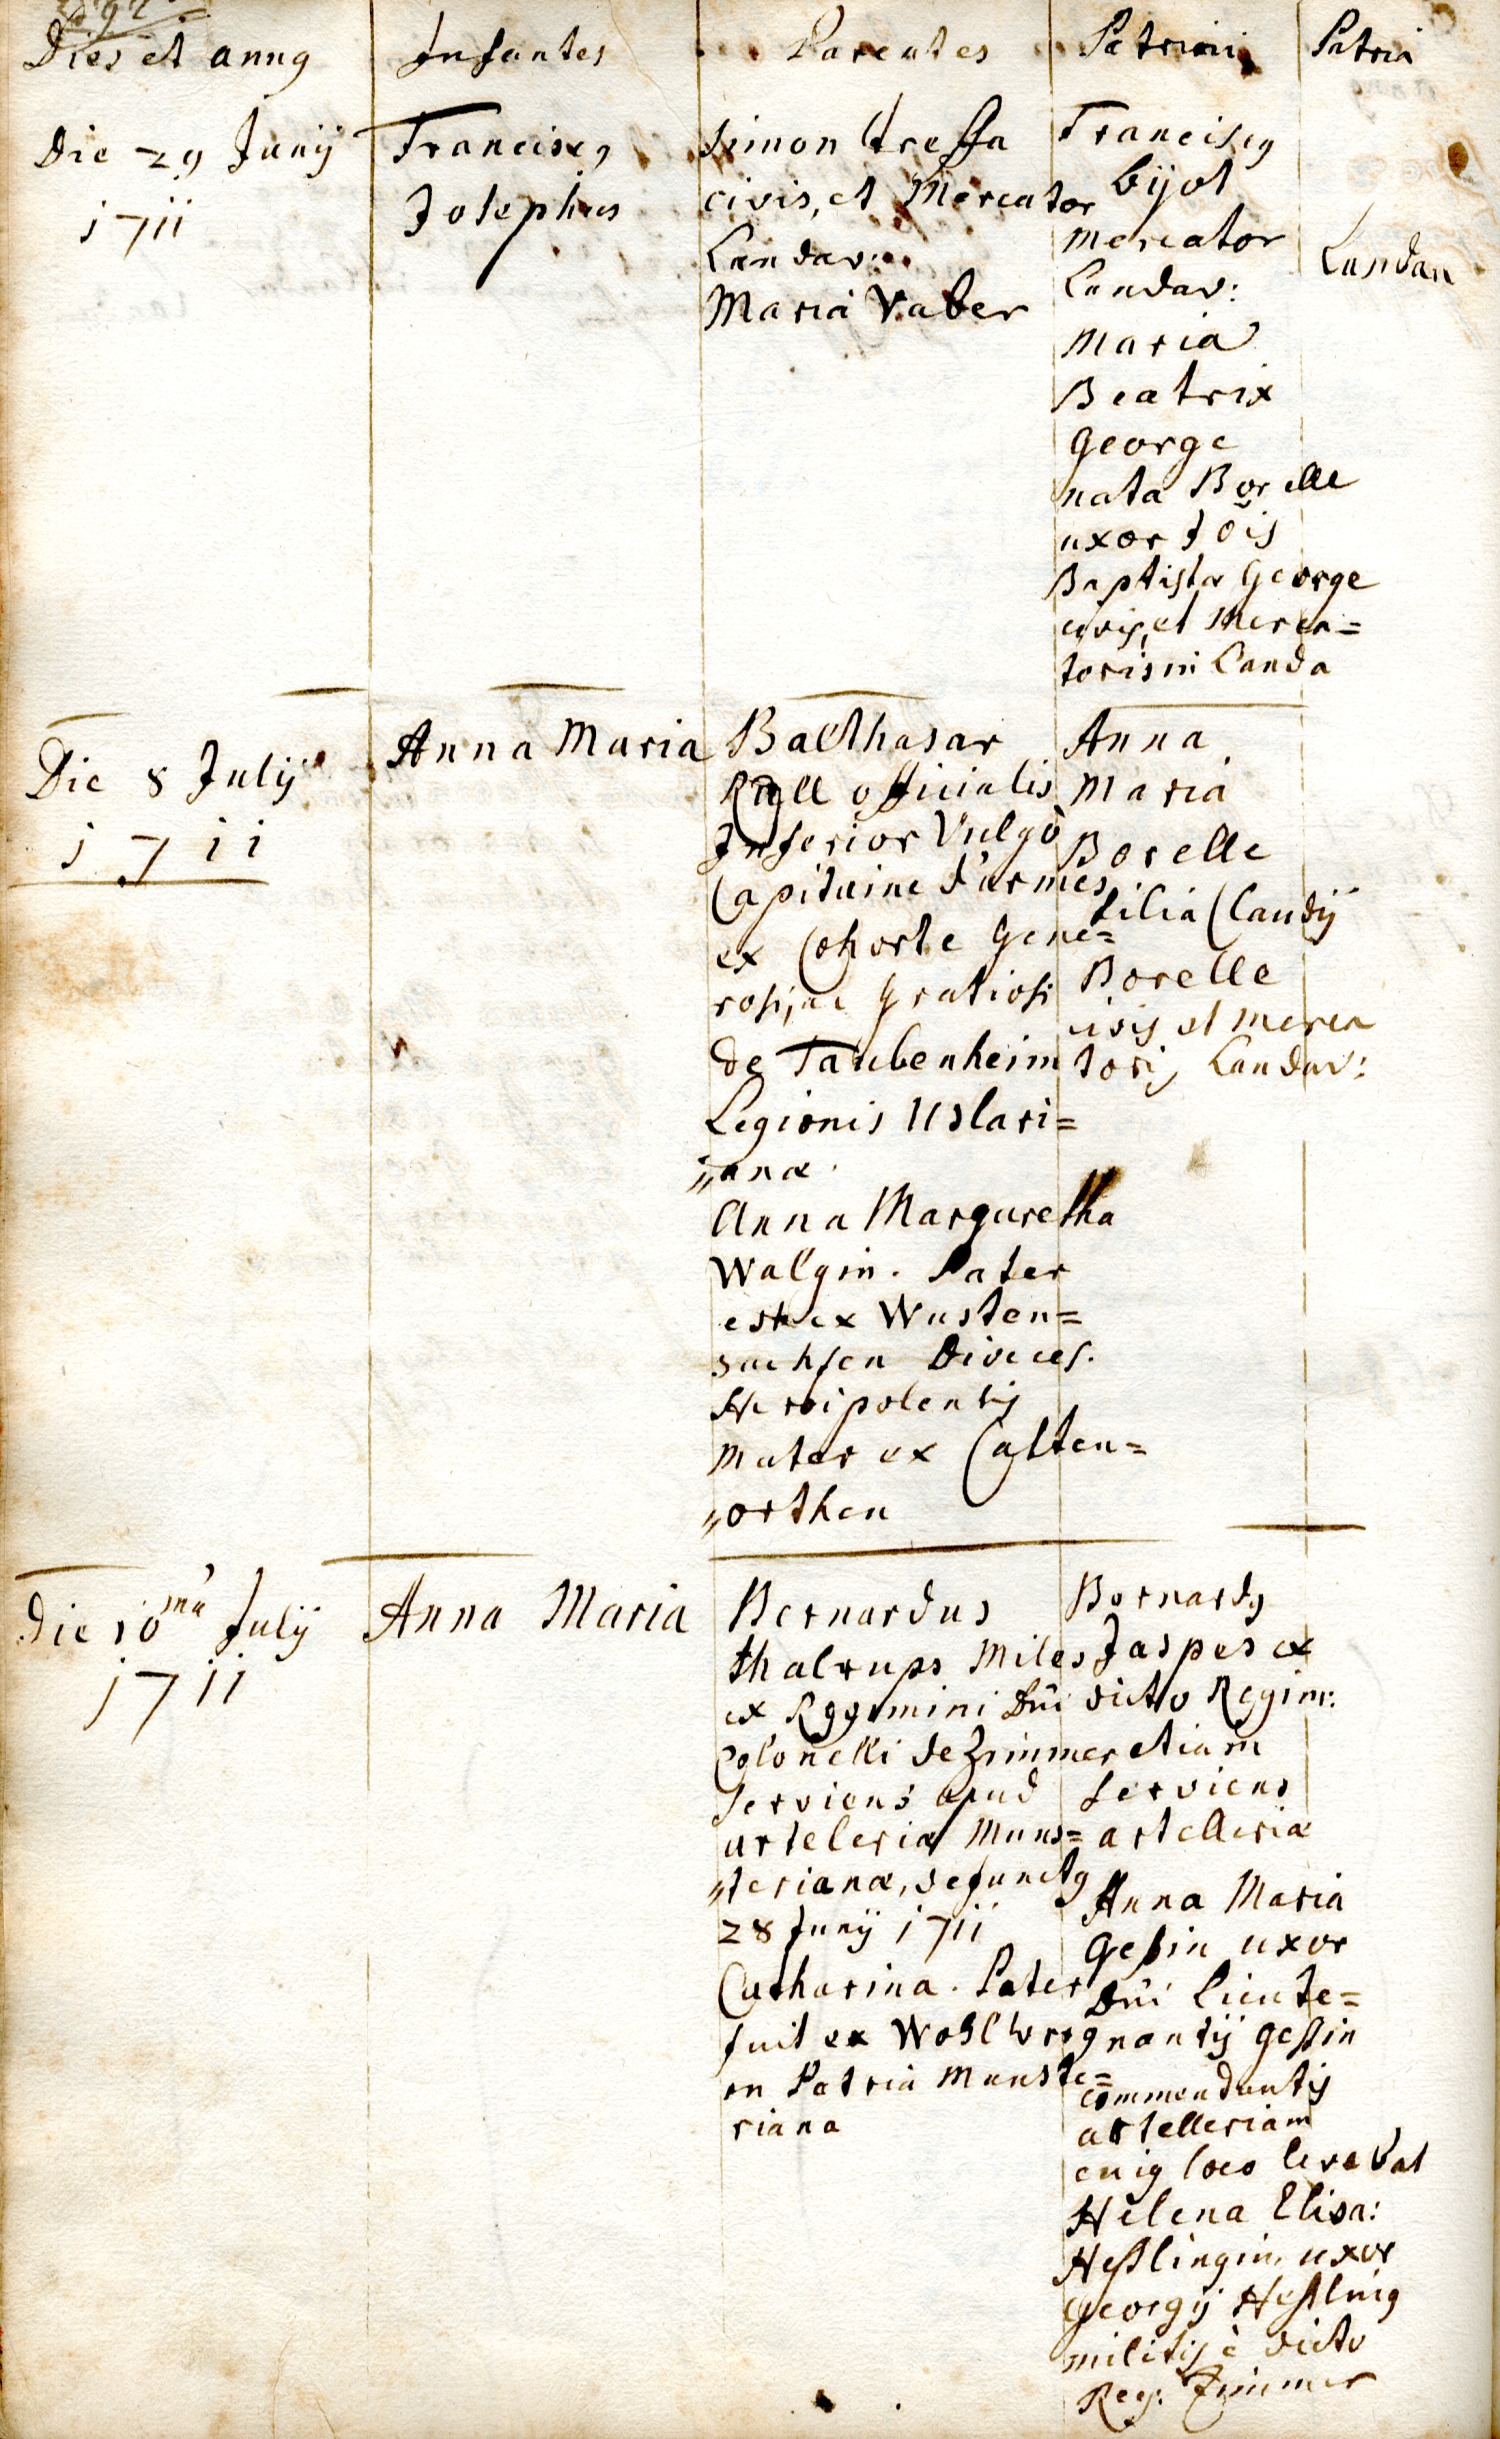 Dies et annq
Infantes
Parentes
Patrini
Patria
Die 29 Junij
1711
Franciscq
Josephus
Simon Tressa
civis, et Mercator
Landav:
Maria Vaber
Franciscq
bijot
mercator
Landav:
Maria
Beatrix
George
nata Borelle
uxor Jois
Baptistæ George
civis, et Merca=
toris in Landa
Landau
Die 8 Julij
1711
Anna Maria
Balthasar
officialis
Inferior Vulgo
Capitaine d'armes
ex Cohorte Gene=
rosi, ac gratiosi
de Taubenheim
Legionis Uslari=
"anæ.
Anna Margaretha
Walgin. Pater
est ex Wusten=
sachsen Dioeces.
Herbipolensis
Mater ex Calten=
"orthen
Anna
Maria
Borelle
filia Claudij
Borelle
civis et merca
toris Landav:
Die 10ma Julij
1711
Anna Maria
Bernardus
thalrups Miles
ex Regimini Dni
Colonelli de Zimmer
Serviens apud
arteleria Muns=
"terianæ, defunctq
28 Junij 1711
Catharina. Pater
fuit ex
en Patria Munste=
riana
Bernardq
Jasper ex
dicto Regim:
etiam
serviens
artelleriæ
Anna Maria
Gessin uxor
Dni Lieute=
nantij Gessin
commendantis
artelleriam
cuiq loco levavat
Helena Elisa:
Hesslingin uxor
Georgij Hessling
militis è dicto
Reg: Zimmer